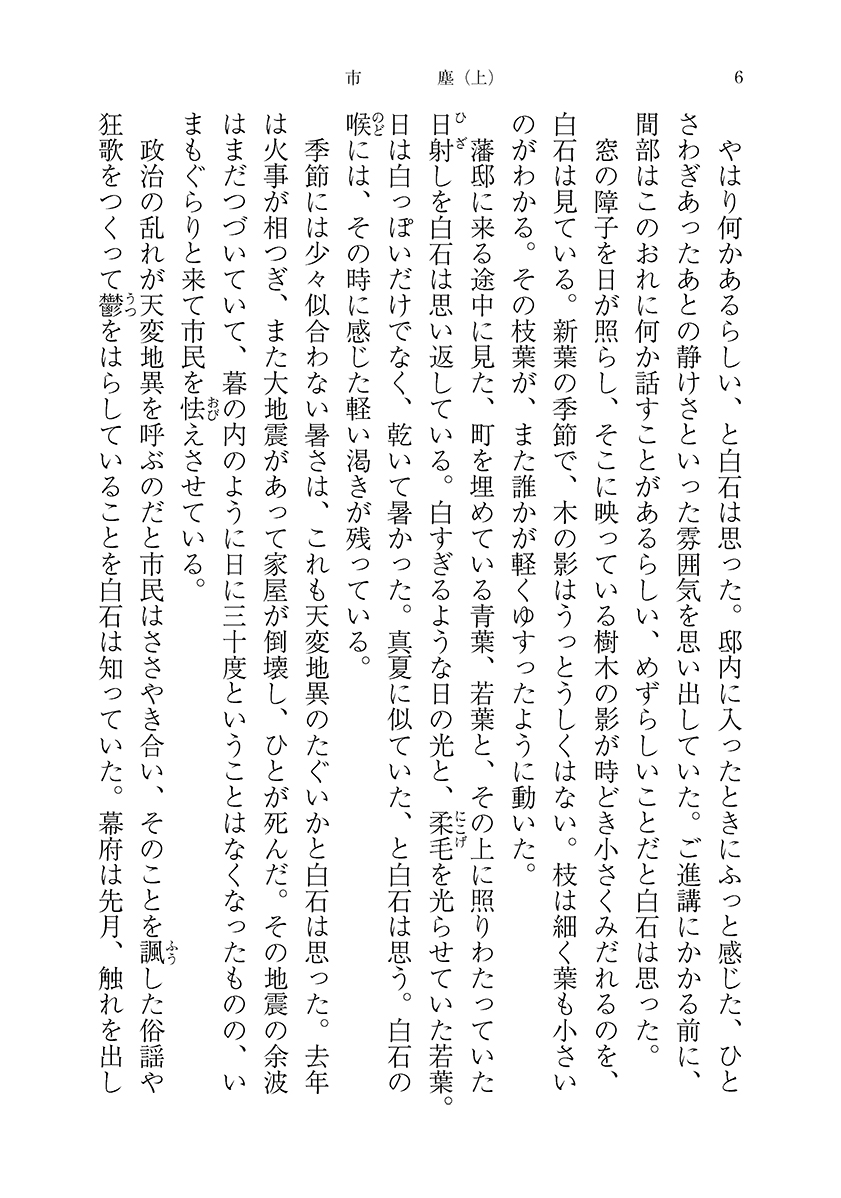 市　塵（上）
6
やはり何かあるらしい、と白石は思った。邸内に入ったときにふっと感じた、ひと
さわぎあったあとの静けさといった雰囲気を思い出していた。ご進講にかかる前に、
間部はこのおれに何か話すことがあるらしい、めずらしいことだと白石は思った。
窓の障子を日が照らし、そこに映っている樹木の影が時どき小さくみだれるのを、
白石は見ている。新葉の季節で、木の影はうっとうしくはない。枝は細く葉も小さい
のがわかる。その枝葉が、また誰かが軽くゆすったように動いた。
藩邸に来る途中に見た、町を埋めている青葉、若葉と、その上に照りわたっていた
日射しを白石は思い返している。白すぎるような日の光と、柔毛を光らせていた若葉。
日は白っぽいだけでなく、乾いて暑かった。真夏に似ていた、と白石は思う。白石の
喉には、その時に感じた軽い渇きが残っている。
季節には少々似合わない暑さは、これも天変地異のたぐいかと白石は思った。去年
は火事が相つぎ、また大地震があって家屋が倒壊し、ひとが死んだ。その地震の余波
はまだつづいていて、暮の内のように日に三十度ということはなくなったものの、い
まもぐらりと来て市民を怯えさせている。
政治の乱れが天変地異を呼ぶのだと市民はささやき合い、そのことを諷した俗謡や
狂歌をつくって鬱をはらしていることを白石は知っていた。幕府は先月、触れを出し